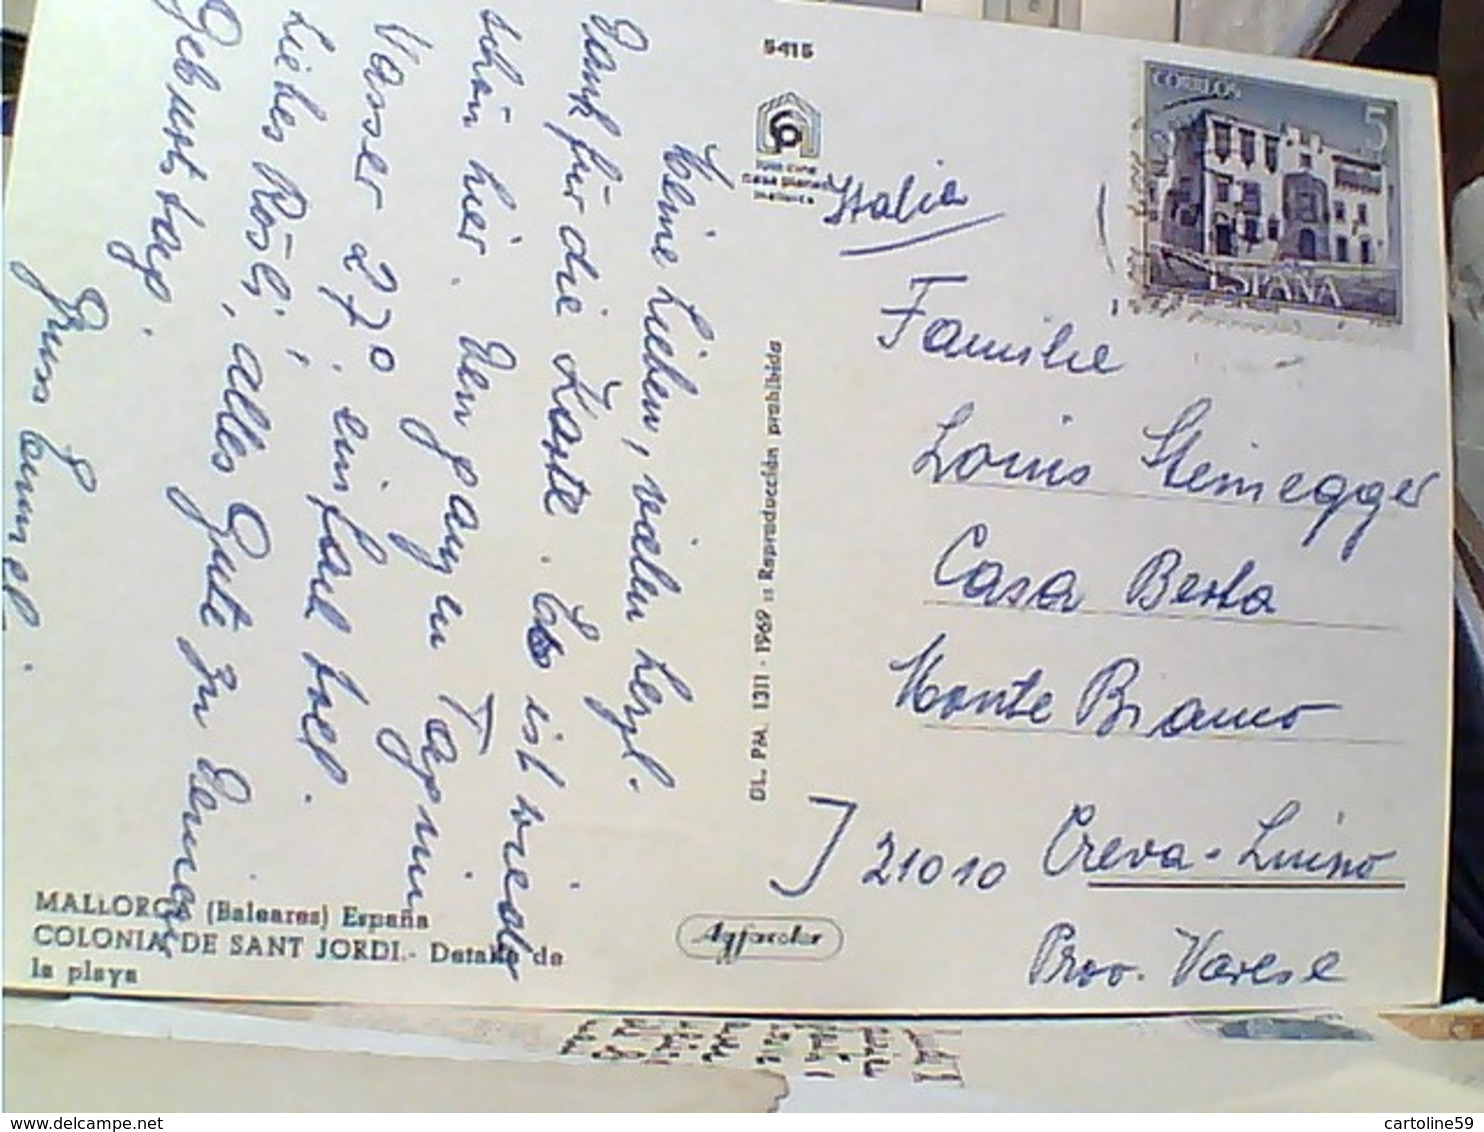 Meine Lieben, vielen herzl.
Dank für die Karte. Es ist wieder
schön hier. Den ganzen Tag nur
Wasser 27°, einfach toll.
Liebes Rösli, alles Gute zu Deinem
Geburtstag.
Gruss Emmel.
MALLORCA (Baleares) España
COLONIA DE SANT JORDI.- Detalle de
la playa
5415
casa planas
mallorca
DL. PM. 1311 - 1969 :: Reproducción prohibida
Agfacolor
CORREOS
5
ESPAÑA
Italia
Familie
Louis Steinegger
Casa Berta
Monte Bianco
I 21010 Creva-Luino
Prov. Varese
cartoline59